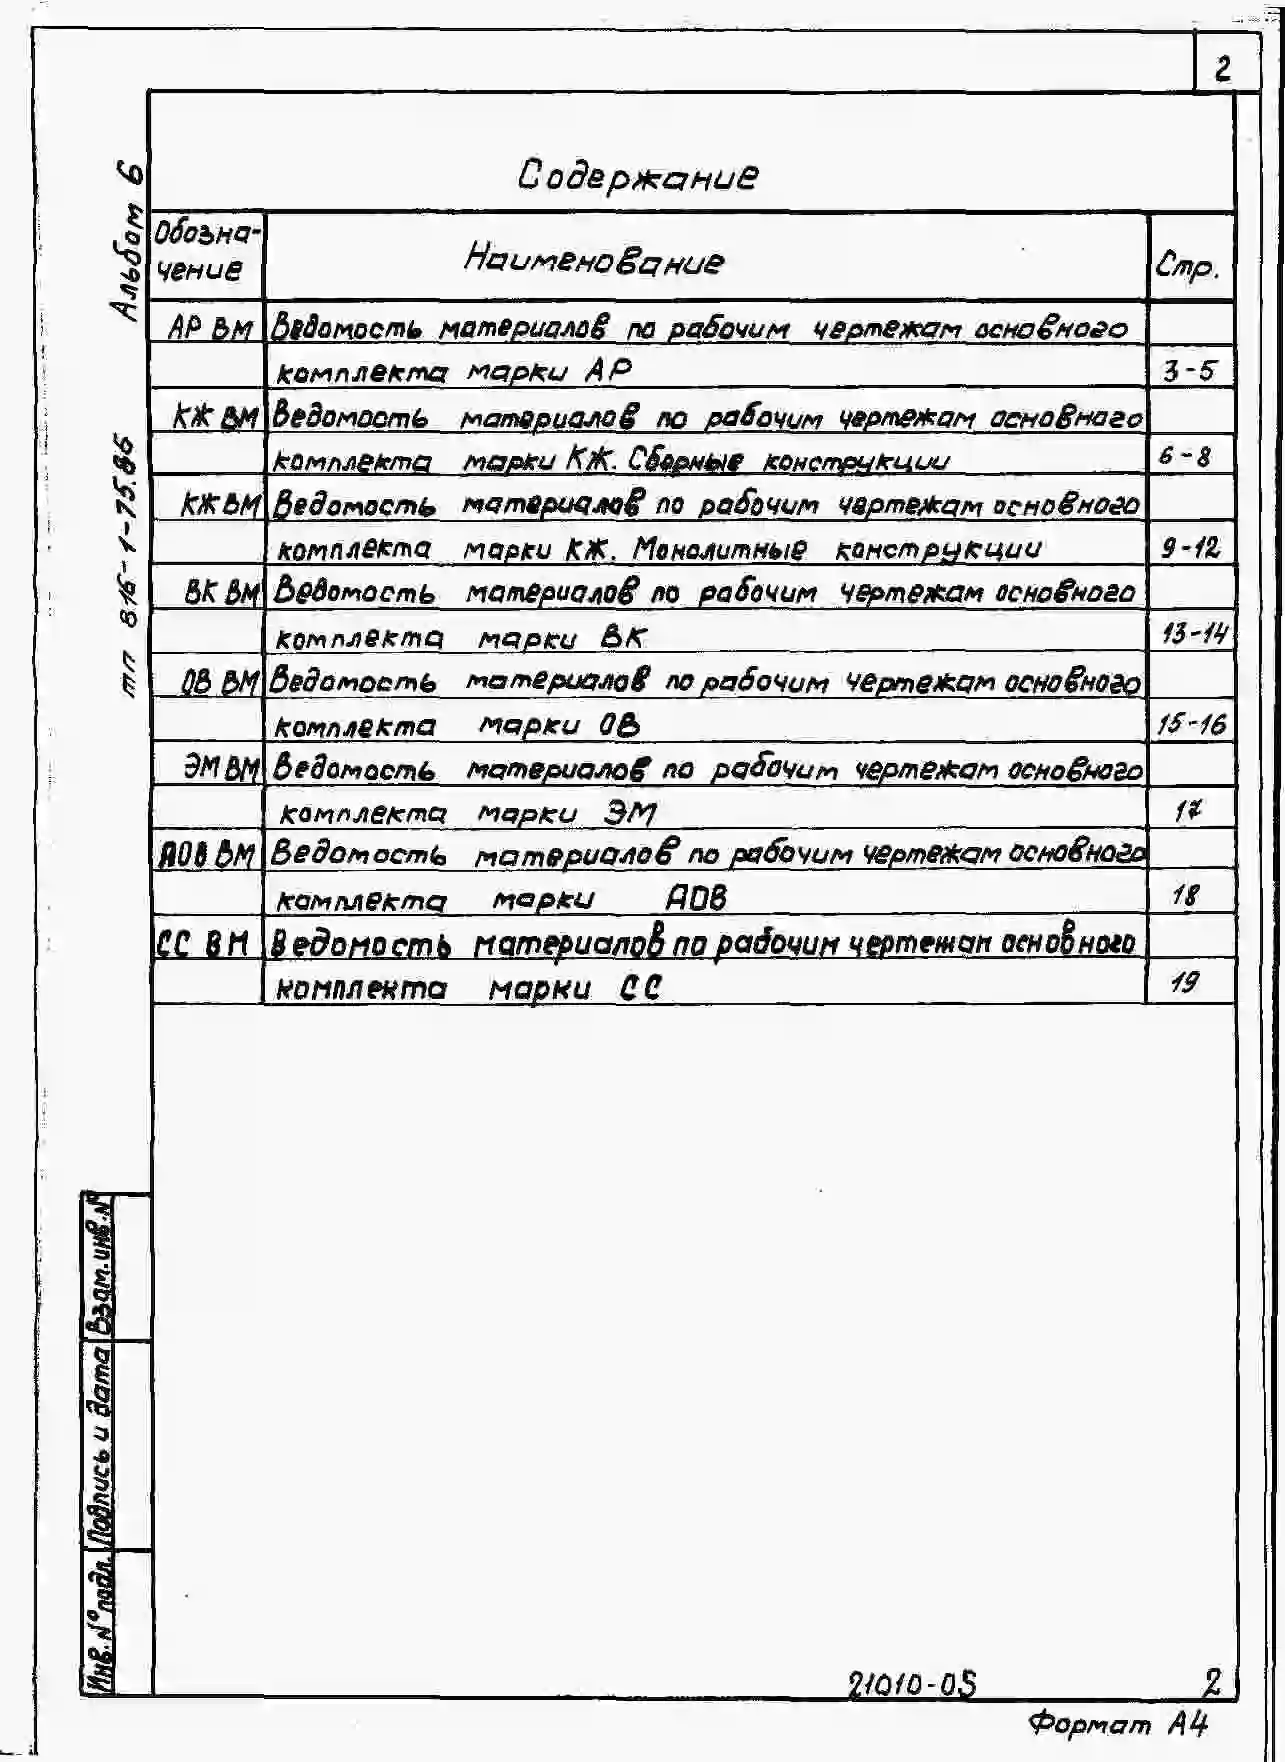 2
Содержание
Обозна-
чение
Наименование
Стр.
АР ВМ Ведомость материалов по рабочим чертежам основного
комплекта марки АР 3-5
КЖ ВМ Ведомость материалов по рабочим чертежам основного
комплекта марки КЖ. Сборные конструкции 6-8
КЖ ВМ Ведомость материалов по рабочим чертежам основного
комплекта марки КЖ. Монолитные конструкции 9-12
ВК ВМ Ведомость материалов по рабочим чертежам основного
комплекта марки ВК 13-14
ОВ ВМ Ведомость материалов по рабочим чертежам основного
комплекта марки ОВ 15-16
ЭМ ВМ Ведомость материалов по рабочим чертежам основного
комплекта марки ЭМ 17
АОВ ВМ Ведомость материалов по рабочим чертежам основного
комплекта марки АОВ 18
СС ВМ Ведомость материалов по рабочим чертежам основного
комплекта марки СС 19
тп 816-1-75.86 Альбом 6
Взам.инв.№
Подпись и дата
Инв.№подл.
21010-05 2
Формат А4